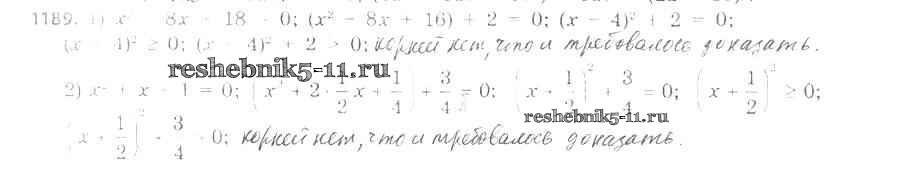 1189. 1) x² - 8x + 18 = 0; (x² - 8x + 16) + 2 = 0; (x - 4)² + 2 = 0;
(x - 4)² ≥ 0; (x - 4)² + 2 > 0; корней нет, что и требовалось доказать.
reshebnik5-11.ru
2) x² + x + 1 = 0; (x² + 2 · 1/2 x + 1/4) + 3/4 = 0; (x + 1/2)² + 3/4 = 0; (x + 1/2)² ≥ 0;
reshebnik5-11.ru
(x + 1/2)² + 3/4 > 0; корней нет, что и требовалось доказать.